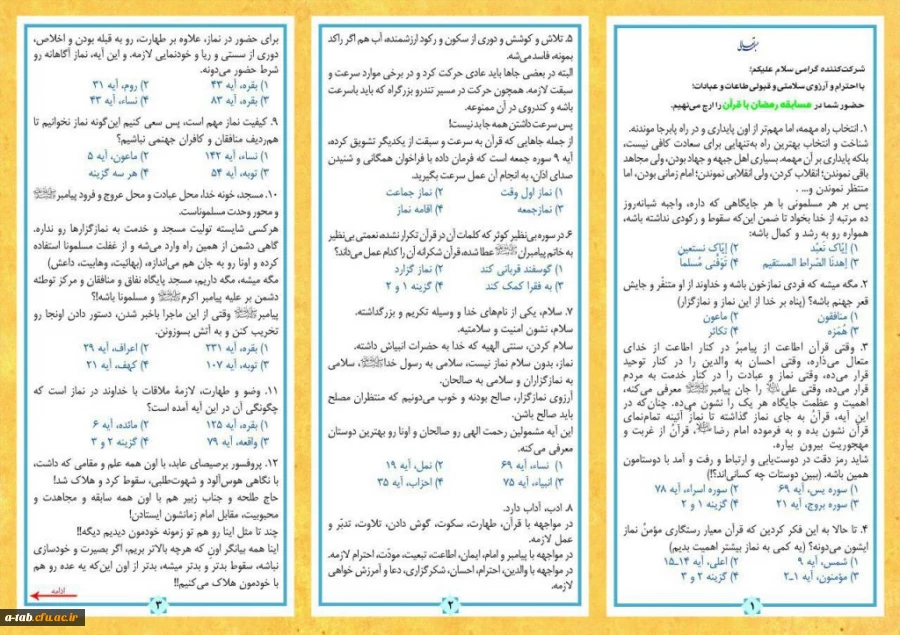 بسمه تعالی
شرکت‌کننده گرامی سلام علیکم؛
با احترام و آرزوی سلامتی و قبولی طاعات و عبادات؛
حضور شما در مسابقه رمضان با قرآن را ارج می‌نهیم.
۱. انتخاب راه مهمه، اما مهم‌تر از اون پایداری و در راه پابرجا موندنه.
شناخت و انتخاب بهترین راه به‌تنهایی برای سعادت کافی نیست،
بلکه پایداری بر آن مهمه. بسیاری اهل جبهه و جهاد بودن، ولی مجاهد
باقی نموندن؛ انقلاب کردن، ولی انقلابی نموندن؛ امام زمانی بودن، اما
منتظر نموندن و... .
پس بر هر مسلمونی با هر جایگاهی که داره، واجبه شبانه‌روز
ده مرتبه از خدا بخواد تا ضمن این‌که سقوط و رکودی نداشته باشه،
همواره رو به رشد و کمال باشه:
۱) إیّاک نَعبُد ۲) إیّاک نستعین
۳) إهدنَا الصّراط المستقیم ۴) تَوَفَّنی مُسلماً
۲. مگه میشه که فردی نمازخون باشه و خداوند از او متنفّر و جایش
قعر جهنم باشه؟ (پناه بر خدا از این نماز و نمازگزار)
۱) منافقون ۲) ماعون
۳) هُمَزه ۴) تکاثر
۳. وقتی قرآن اطاعت از پیامبرُ در کنار اطاعت از خدای
متعال می‌ذاره، وقتی احسان به والدین را در کنار توحید
قرار می‌ده، وقتی نماز و عبادت را در کنار خدمت به مردم
قرار می‌ده، وقتی علی را جان پیامبر معرفی می‌کنه،
اهمیت و عظمت جایگاه هر یک را نشون می‌ده. چنان‌که در
این آیه، قرآنُ به جای نماز گذاشته تا نماز آئینه تمام‌نمای
قرآن نشون بده و به فرموده امام رضا، قرآنُ از غربت و
مهجوریت بیرون بیاره.
شاید رمز دقت در دوست‌یابی و ارتباط و رفت و آمد با دوستامون
همین باشه. (ببین دوستات چه کسانی‌اند؟!)
۱) سوره یس، آیه ۶۹ ۲) سوره اسراء، آیه ۷۸
۳) سوره بروج، آیه ۲۱ ۴) گزینه ۱ و ۲
۴. تا حالا به این فکر کردین که قرآن معیار رستگاری مؤمنُ نماز
ایشون می‌دونه؟ (یه کمی به نماز بیشتر اهمیت بدیم)
۱) شمس، آیه ۹ ۲) اعلی، آیه ۱۴ـ۱۵
۳) مؤمنون، آیه ۱ـ۲ ۴) گزینه ۲ و ۳
۱
۵. تلاش و کوشش و دوری از سکون و رکود ارزشمنده، آب هم اگر راکد
بمونه، فاسد می‌شه.
البته در بعضی جاها باید عادی حرکت کرد و در برخی موارد سرعت و
سبقت لازمه. همچون حرکت در مسیر تندرو بزرگراه که باید باسرعت
باشه و کندروی در آن ممنوعه.
پس سرعت داشتن همه جا بد نیست!
از جمله جاهایی که قرآن به سرعت و سبقت از یکدیگر تشویق کرده،
آیه ۹ سوره جمعه است که فرمان داده با فراخوان همگانی و شنیدن
صدای اذان، به انجام آن عمل سرعت بگیرید.
۱) نماز اول وقت ۲) نماز جماعت
۳) نمازجمعه ۴) اقامه نماز
۶. در سوره بی‌نظیر کوثر که کلمات آن در قرآن تکرار نشده نعمتی بی‌نظیر
به خاتم پیامبران عطا شده، قرآن شکرانه آن را کدام عمل می‌داند؟
۱) گوسفند قربانی کند ۲) نماز گزارد
۳) به فقرا کمک کند ۴) گزینه ۱ و ۲
۷. سلام، یکی از نام‌های خدا و وسیله تکریم و بزرگداشته.
سلام، نشون امنیت و سلامتیه.
سلام کردن، سنتی الهیه که خدا به حضرات انبیاش داشته.
نماز، بدون سلام نماز نیست، سلامی به رسول خدا، سلامی
به نمازگزاران و سلامی به صالحان.
آرزوی نمازگزار، صالح بودنه و خوب می‌دونیم که منتظران مصلح
باید صالح باشن.
این آیه مشمولین رحمت الهی رو صالحان و اونا رو بهترین دوستان
معرفی می‌کنه.
۱) نساء، آیه ۶۹ ۲) نمل، آیه ۱۹
۳) انبیاء، آیه ۷۵ ۴) احزاب، آیه ۳۵
۸. ادب، آداب داره.
در مواجهه با قرآن، طهارت، سکوت، گوش دادن، تلاوت، تدبّر و
عمل لازمه.
در مواجهه با پیامبر و امام، ایمان، اطاعت، تبعیت، مودّت، احترام لازمه.
در مواجهه با والدین، احترام، احسان، شکرگزاری، دعا و آمرزش خواهی
لازمه.
۲
برای حضور در نماز، علاوه بر طهارت، رو به قبله بودن و اخلاص،
دوری از سستی و ریا و خودنمایی لازمه. و این آیه، نماز آگاهانه رو
شرط حضور می‌دونه.
۱) بقره، آیه ۴۳ ۲) روم، آیه ۳۱
۳) بقره، آیه ۸۳ ۴) نساء، آیه ۴۳
۹. کیفیت نماز مهم است، پس سعی کنیم این‌گونه نماز نخوانیم تا
هم‌ردیف منافقان و کافران جهنمی نباشیم؟
۱) نساء، آیه ۱۴۲ ۲) ماعون، آیه ۵
۳) توبه، آیه ۵۴ ۴) هر سه گزینه
۱۰. مسجد، خونه خدا، محل عبادت و محل عروج و فرود پیامبر
و محور وحدت مسلموناست.
هر کسی شایسته تولیت مسجد و خدمت به نمازگزارها رو نداره.
گاهی دشمن از همین راه وارد می‌شه و از غفلت مسلمونا استفاده
کرده و اونا رو به جان هم می‌اندازه، (بهائیت، وهابیت، داعش)
مگه میشه، مگه داریم، مسجد پایگاه نفاق و منافقان و مرکز توطئه
دشمن بر علیه پیامبر اکرم و مسلمونا باشه!؟
پیامبر وقتی از این ماجرا باخبر شدن، دستور دادن اونجا رو
تخریب کنن و به آتش بسوزونن.
۱) بقره، آیه ۲۳۱ ۲) اعراف، آیه ۲۹
۳) توبه، آیه ۱۰۷ ۴) کهف، آیه ۲۱
۱۱. وضو و طهارت، لازمهٔ ملاقات با خداوند در نماز است که
چگونگی آن در این آیه آمده است؟
۱) بقره، آیه ۱۲۵ ۲) مائده، آیه ۶
۳) واقعه، آیه ۷۹ ۴) گزینه ۲ و ۳
۱۲. پروفسور برصیصای عابد، با اون همه علم و مقامی که داشت،
با نگاهی هوس‌آلود و شهوت‌طلبی، سقوط کرد و هلاک شد!
حاج طلحه و جناب زبیر هم با اون همه سابقه و مجاهدت و
محبوبیت، مقابل امام زمانشون ایستادن!
چند تا مثل اینا رو هم تو زمونه خودمون دیدیم دیگه!!
اینا همه بیانگر اون که هرچه بالاتر بریم، اگر بصیرت و خودسازی
نباشه، سقوط بدتر و بدتر میشه، بدتر از اون این‌که یه عده رو هم
با خودمون هلاک می‌کنیم!!
ادامه
۳
a-tab.cfu.ac.ir